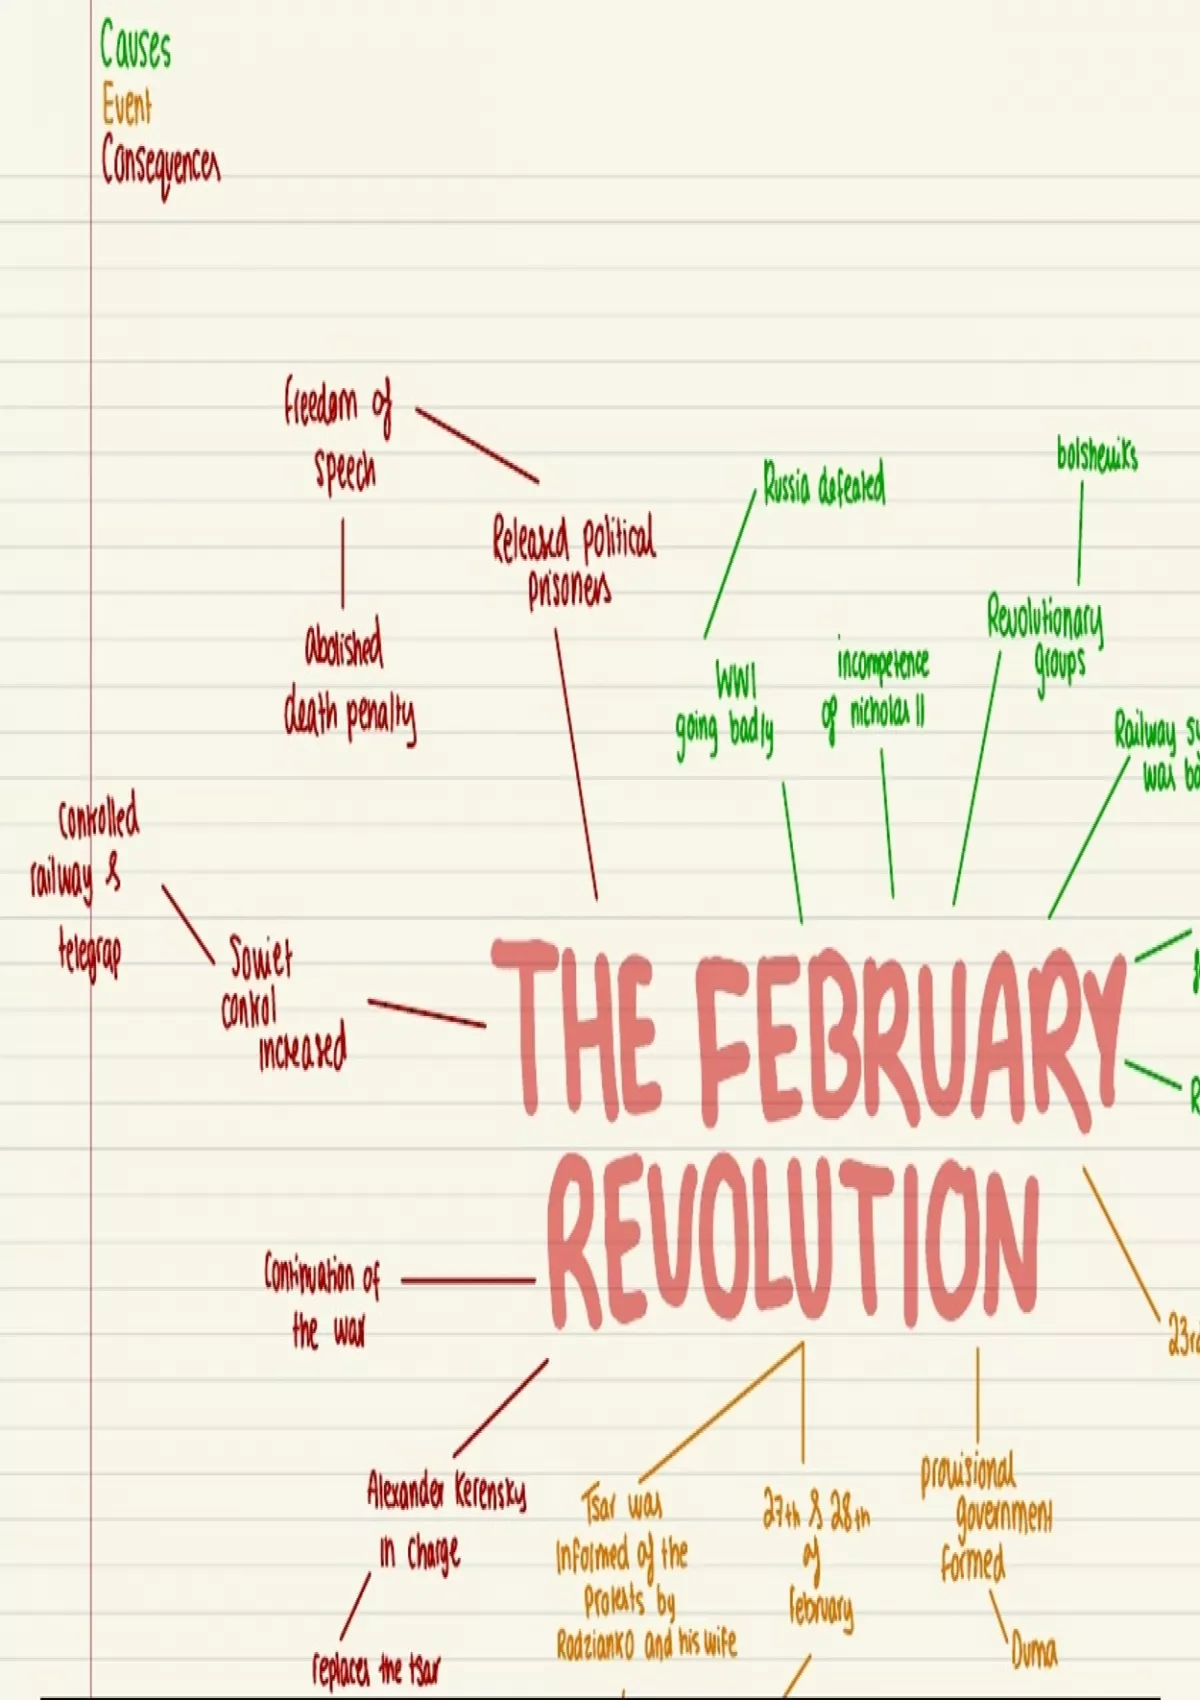 Causes
Event
Consequences
freedom of
speech
Released political
prisoners
abolished
death penalty
Russia defeated
bolsheviks
WWI
going badly
incompetence
of nicholas II
Revolutionary
groups
Railway
was
Controlled
railway &
telegrap
Soviet
control
increased
THE FEBRUARY
REVOLUTION
Continuation of
the war
Alexander Kerensky
in charge
replaces the tsar
Tsar was
informed of the
protests by
Rodzianko and his wife
27th & 28th
of
february
provisional
government
formed
Duma